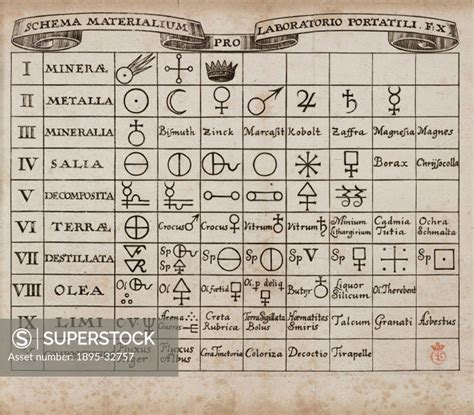 SCHEMA MATERIALIUM PRO LABORATORIO PORTATILI. F.X
I MINERÆ
II METALLA ☉ ☾ ♀ ♂ ♃ ♄ ☿
III MINERALIA Bismuth Zinck Marcasit Kobolt Zaffra Magnesia Magnes
IV SALIA Borax Chrijsocolla
V DECOMPOSITA
VI TERRÆ Crocus♂ Crocus♀ Vitrum Vitrum Minium Cadmia Ochra
Lithargirium Tutia Schmalta
VII DESTILLATA Sp Sp Sp Sp Sp Sp Sp
Sp
VIII OLEA Ol Ol Ol fœtid Ol p. deliq Butyr Liquor Ol Therebent
Silicum
IX LIMI C V Arena Creta Terra Sigillata Hæmatites Talcum Granati Asbestus
Cineres Rubrica Bolus Smiris
Fluxus Fluxus Cera Tinctoria Coloriza Decoctio Tirapelle
Albus
SUPERSTOCK
Asset number: 1895-32757